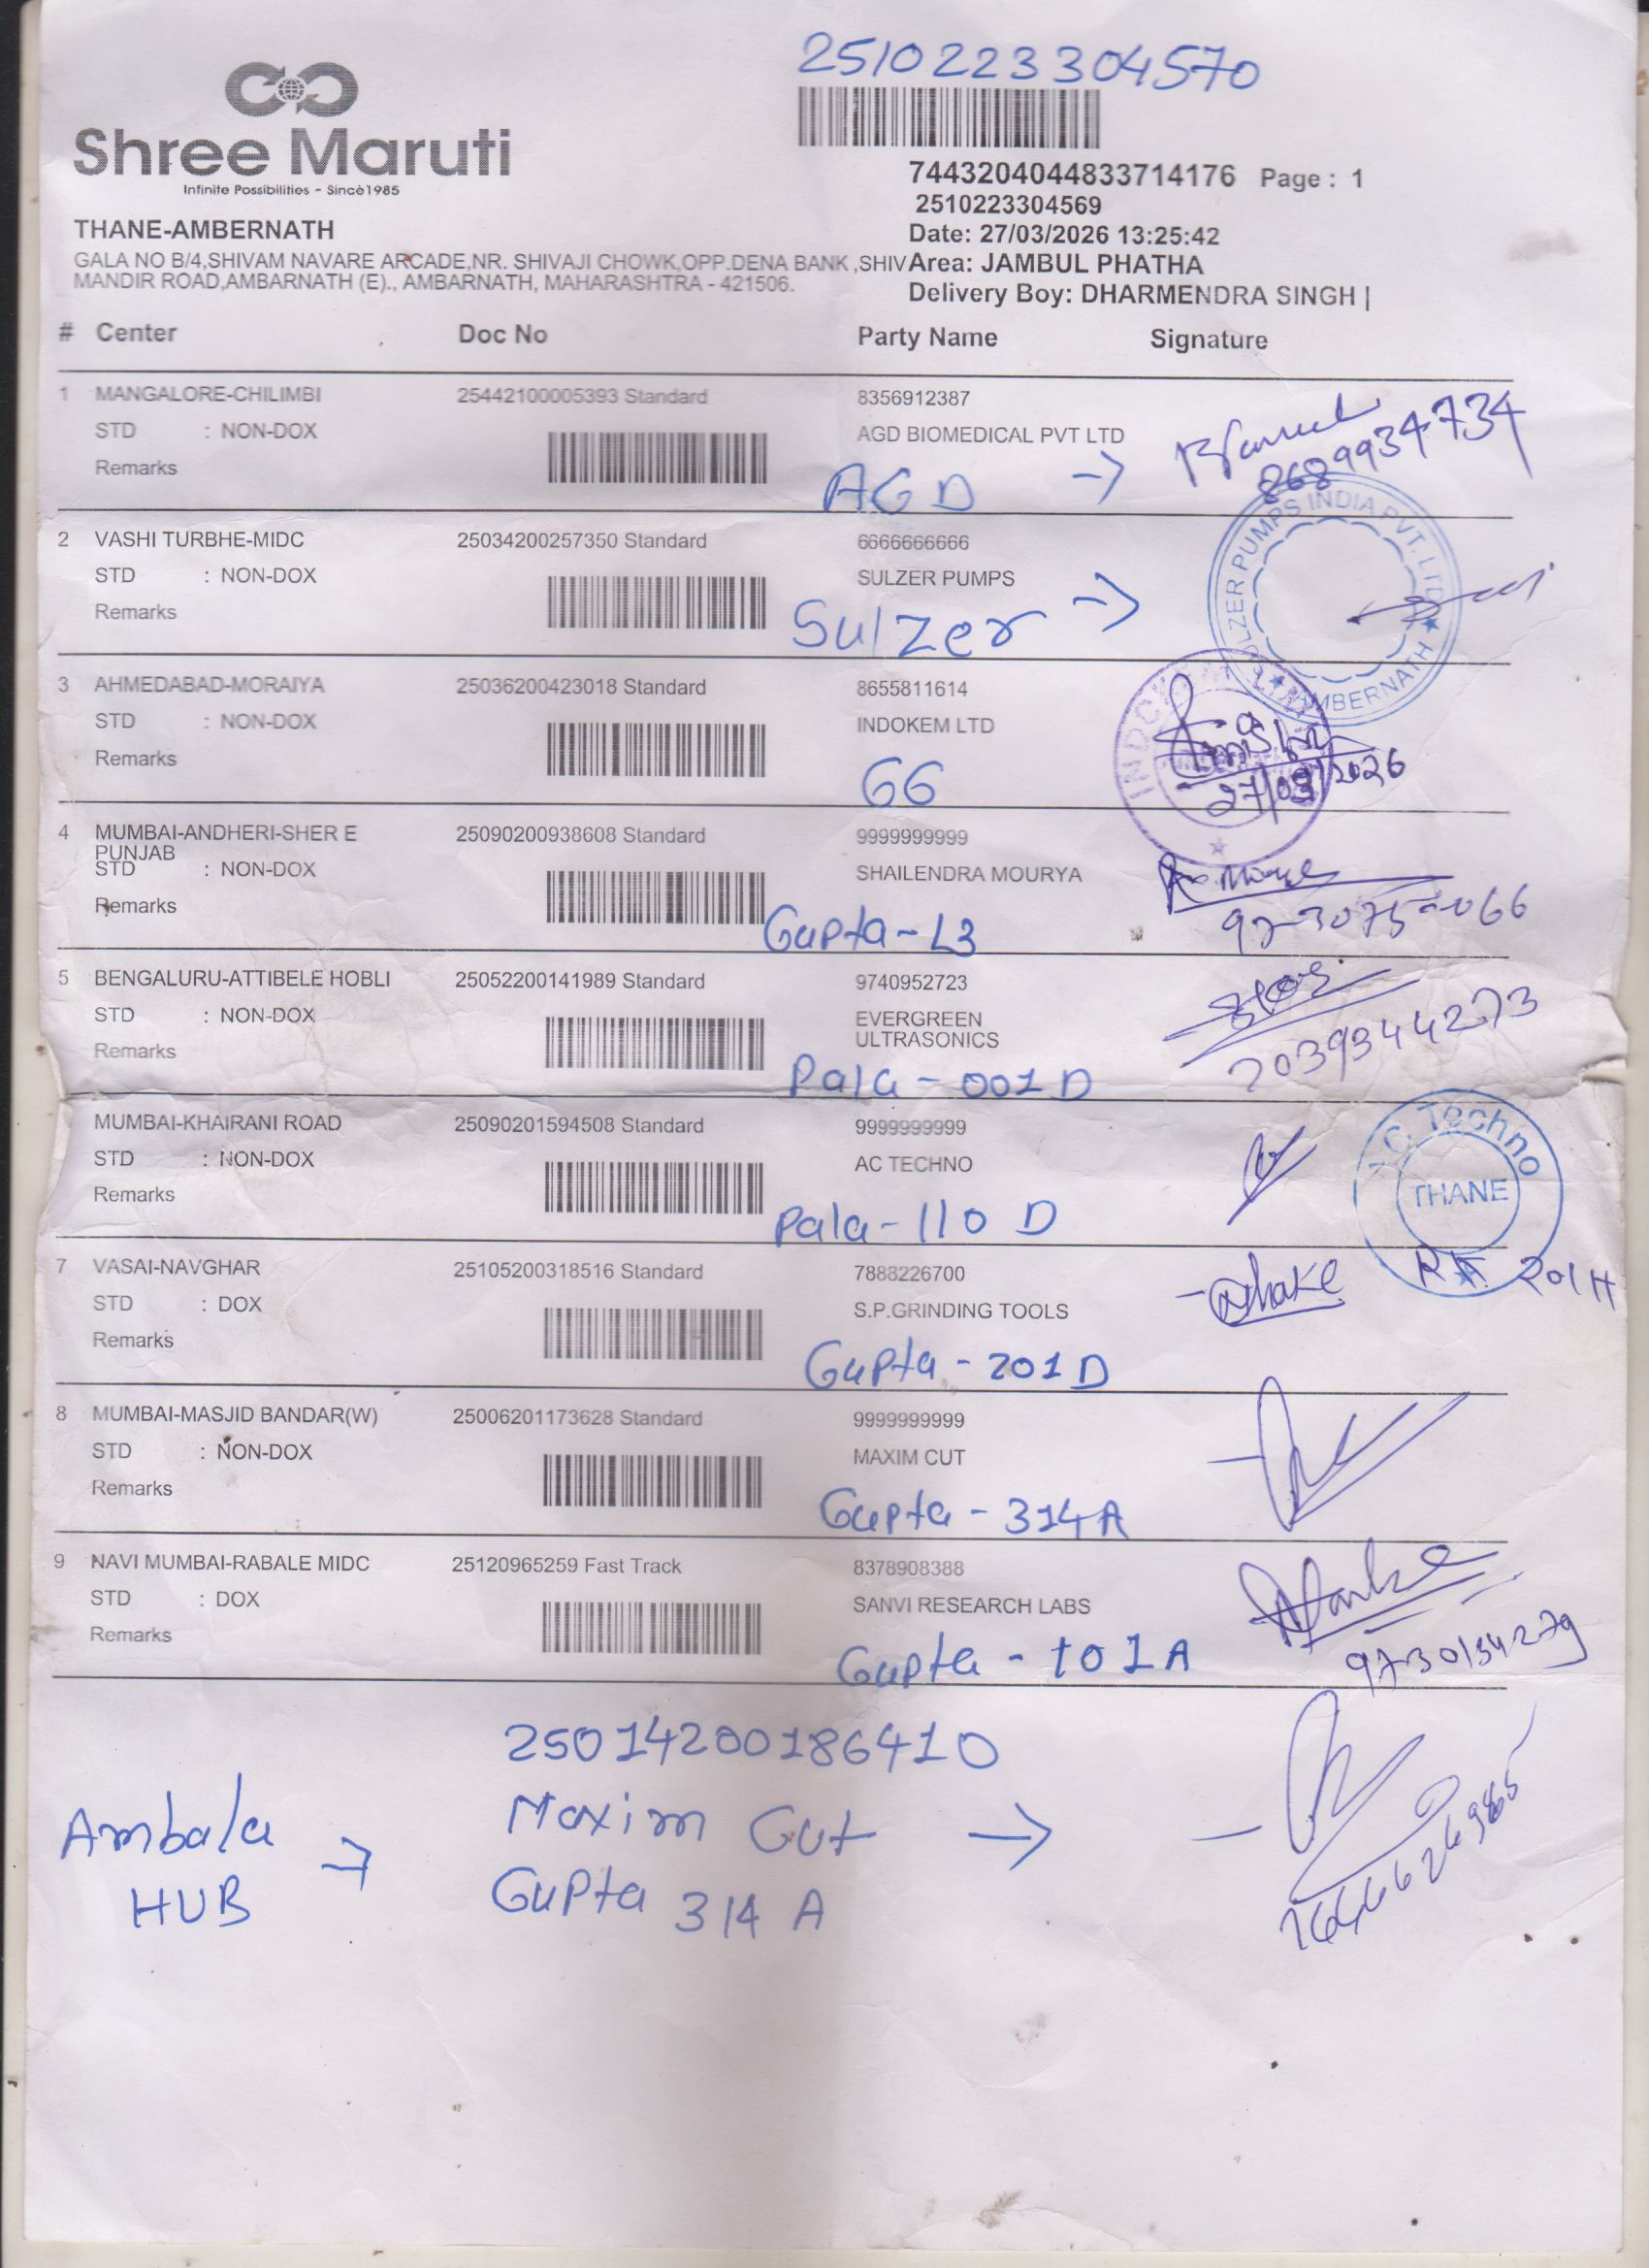 2510223304570
Shree Maruti
Infinite Possibilities - Since1985
7443204044833714176 Page : 1
2510223304569
THANE-AMBERNATH
Date: 27/03/2026 13:25:42
GALA NO B/4,SHIVAM NAVARE ARCADE,NR. SHIVAJI CHOWK,OPP.DENA BANK ,SHIV
Area: JAMBUL PHATHA
MANDIR ROAD,AMBARNATH (E)., AMBARNATH, MAHARASHTRA - 421506.
Delivery Boy: DHARMENDRA SINGH |
# Center Doc No Party Name Signature
1 MANGALORE-CHILIMBI 25442100005393 Standard 8356912387
STD : NON-DOX AGD BIOMEDICAL PVT LTD
8689934734
Remarks
AGD →
2 VASHI TURBHE-MIDC 25034200257350 Standard 6666666666
STD : NON-DOX SULZER PUMPS
Remarks
Sulzer →
SULZER PUMPS INDIA PVT. LTD. ★ AMBERNATH ★
3 AHMEDABAD-MORAIYA 25036200423018 Standard 8655811614
STD : NON-DOX INDOKEM LTD
Remarks
GG
27/03/2026
4 MUMBAI-ANDHERI-SHER E PUNJAB 25090200938608 Standard 9999999999
STD : NON-DOX SHAILENDRA MOURYA
Remarks
Gupta-L3
5 BENGALURU-ATTIBELE HOBLI 25052200141989 Standard 9740952723
STD : NON-DOX EVERGREEN
ULTRASONICS
Remarks
Pala-001D
MUMBAI-KHAIRANI ROAD 25090201594508 Standard 9999999999
STD : NON-DOX AC TECHNO
Remarks
Pala-110 D
A.C. Techno
THANE
7 VASAI-NAVGHAR 25105200318516 Standard 7888226700
STD : DOX S.P.GRINDING TOOLS
Remarks
Gupta-201D
8 MUMBAI-MASJID BANDAR(W) 25006201173628 Standard 9999999999
STD : NON-DOX MAXIM CUT
Remarks
Gupta-314A
9 NAVI MUMBAI-RABALE MIDC 25120965259 Fast Track 8378908388
STD : DOX SANVI RESEARCH LABS
Remarks
Gupta-101A
25014200186410
Ambala HUB →
Maxim Cut →
Gupta 314 A